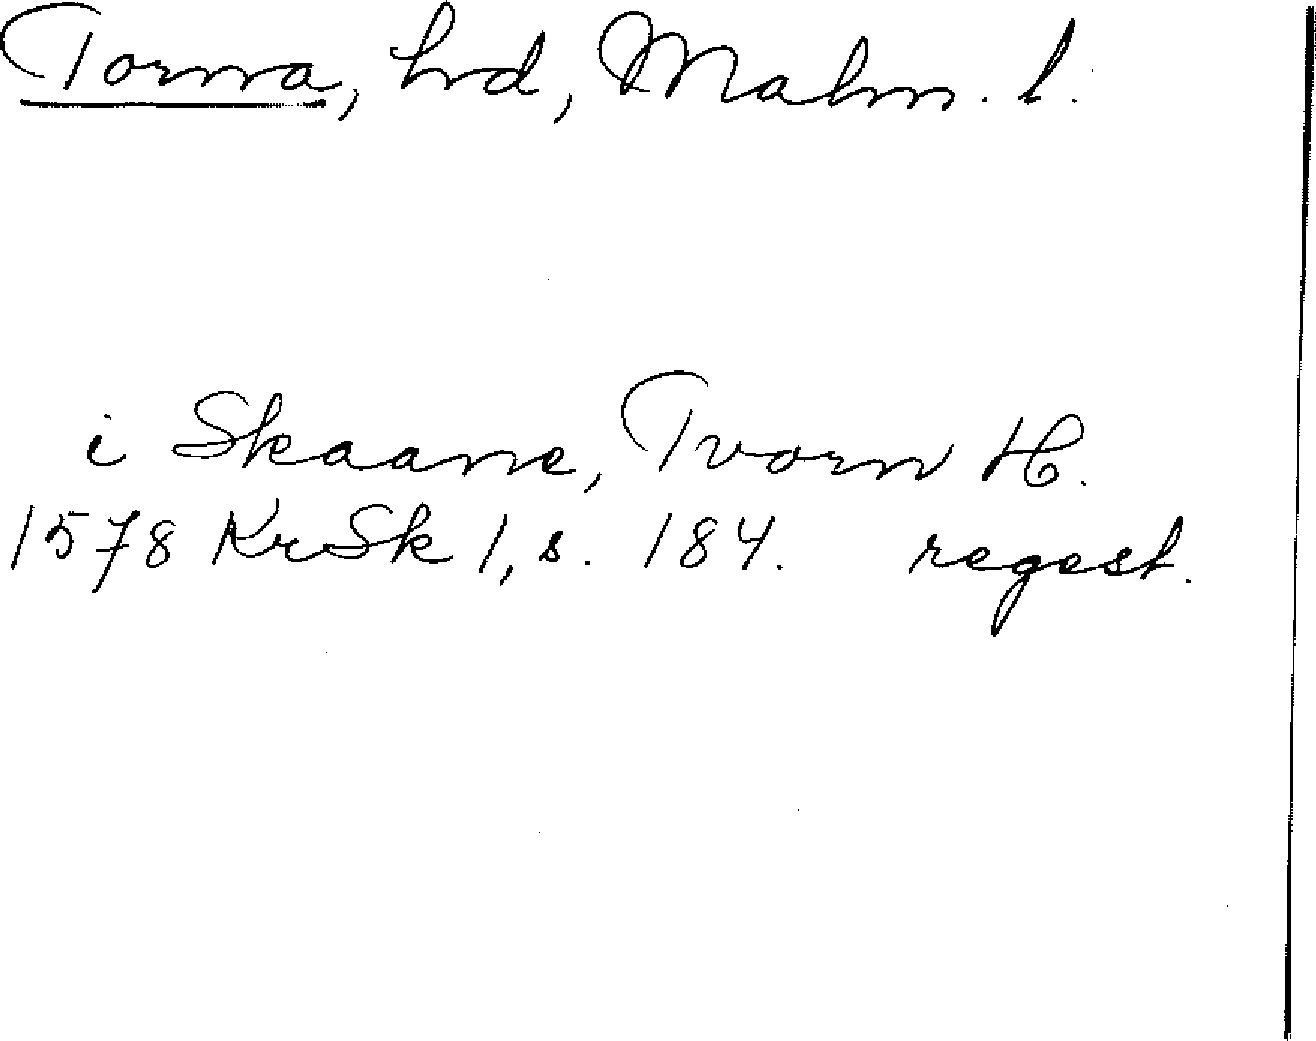 Torna, hrd, Malm. l.
i Skaane, Tvorn H.
1578 KrSk 1, s. 184. regest.